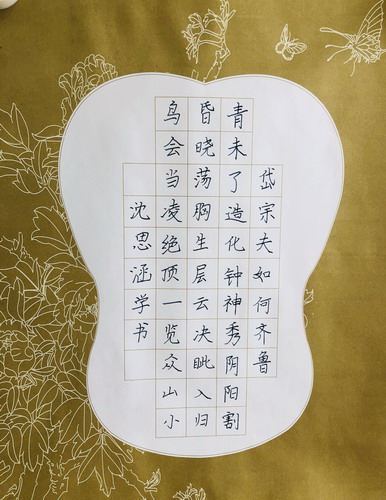 岱宗夫如何齐鲁
青未了造化钟神秀阴阳割
昏晓荡胸生层云决眦入归
鸟会当凌绝顶一览众山小
沈思涵学书